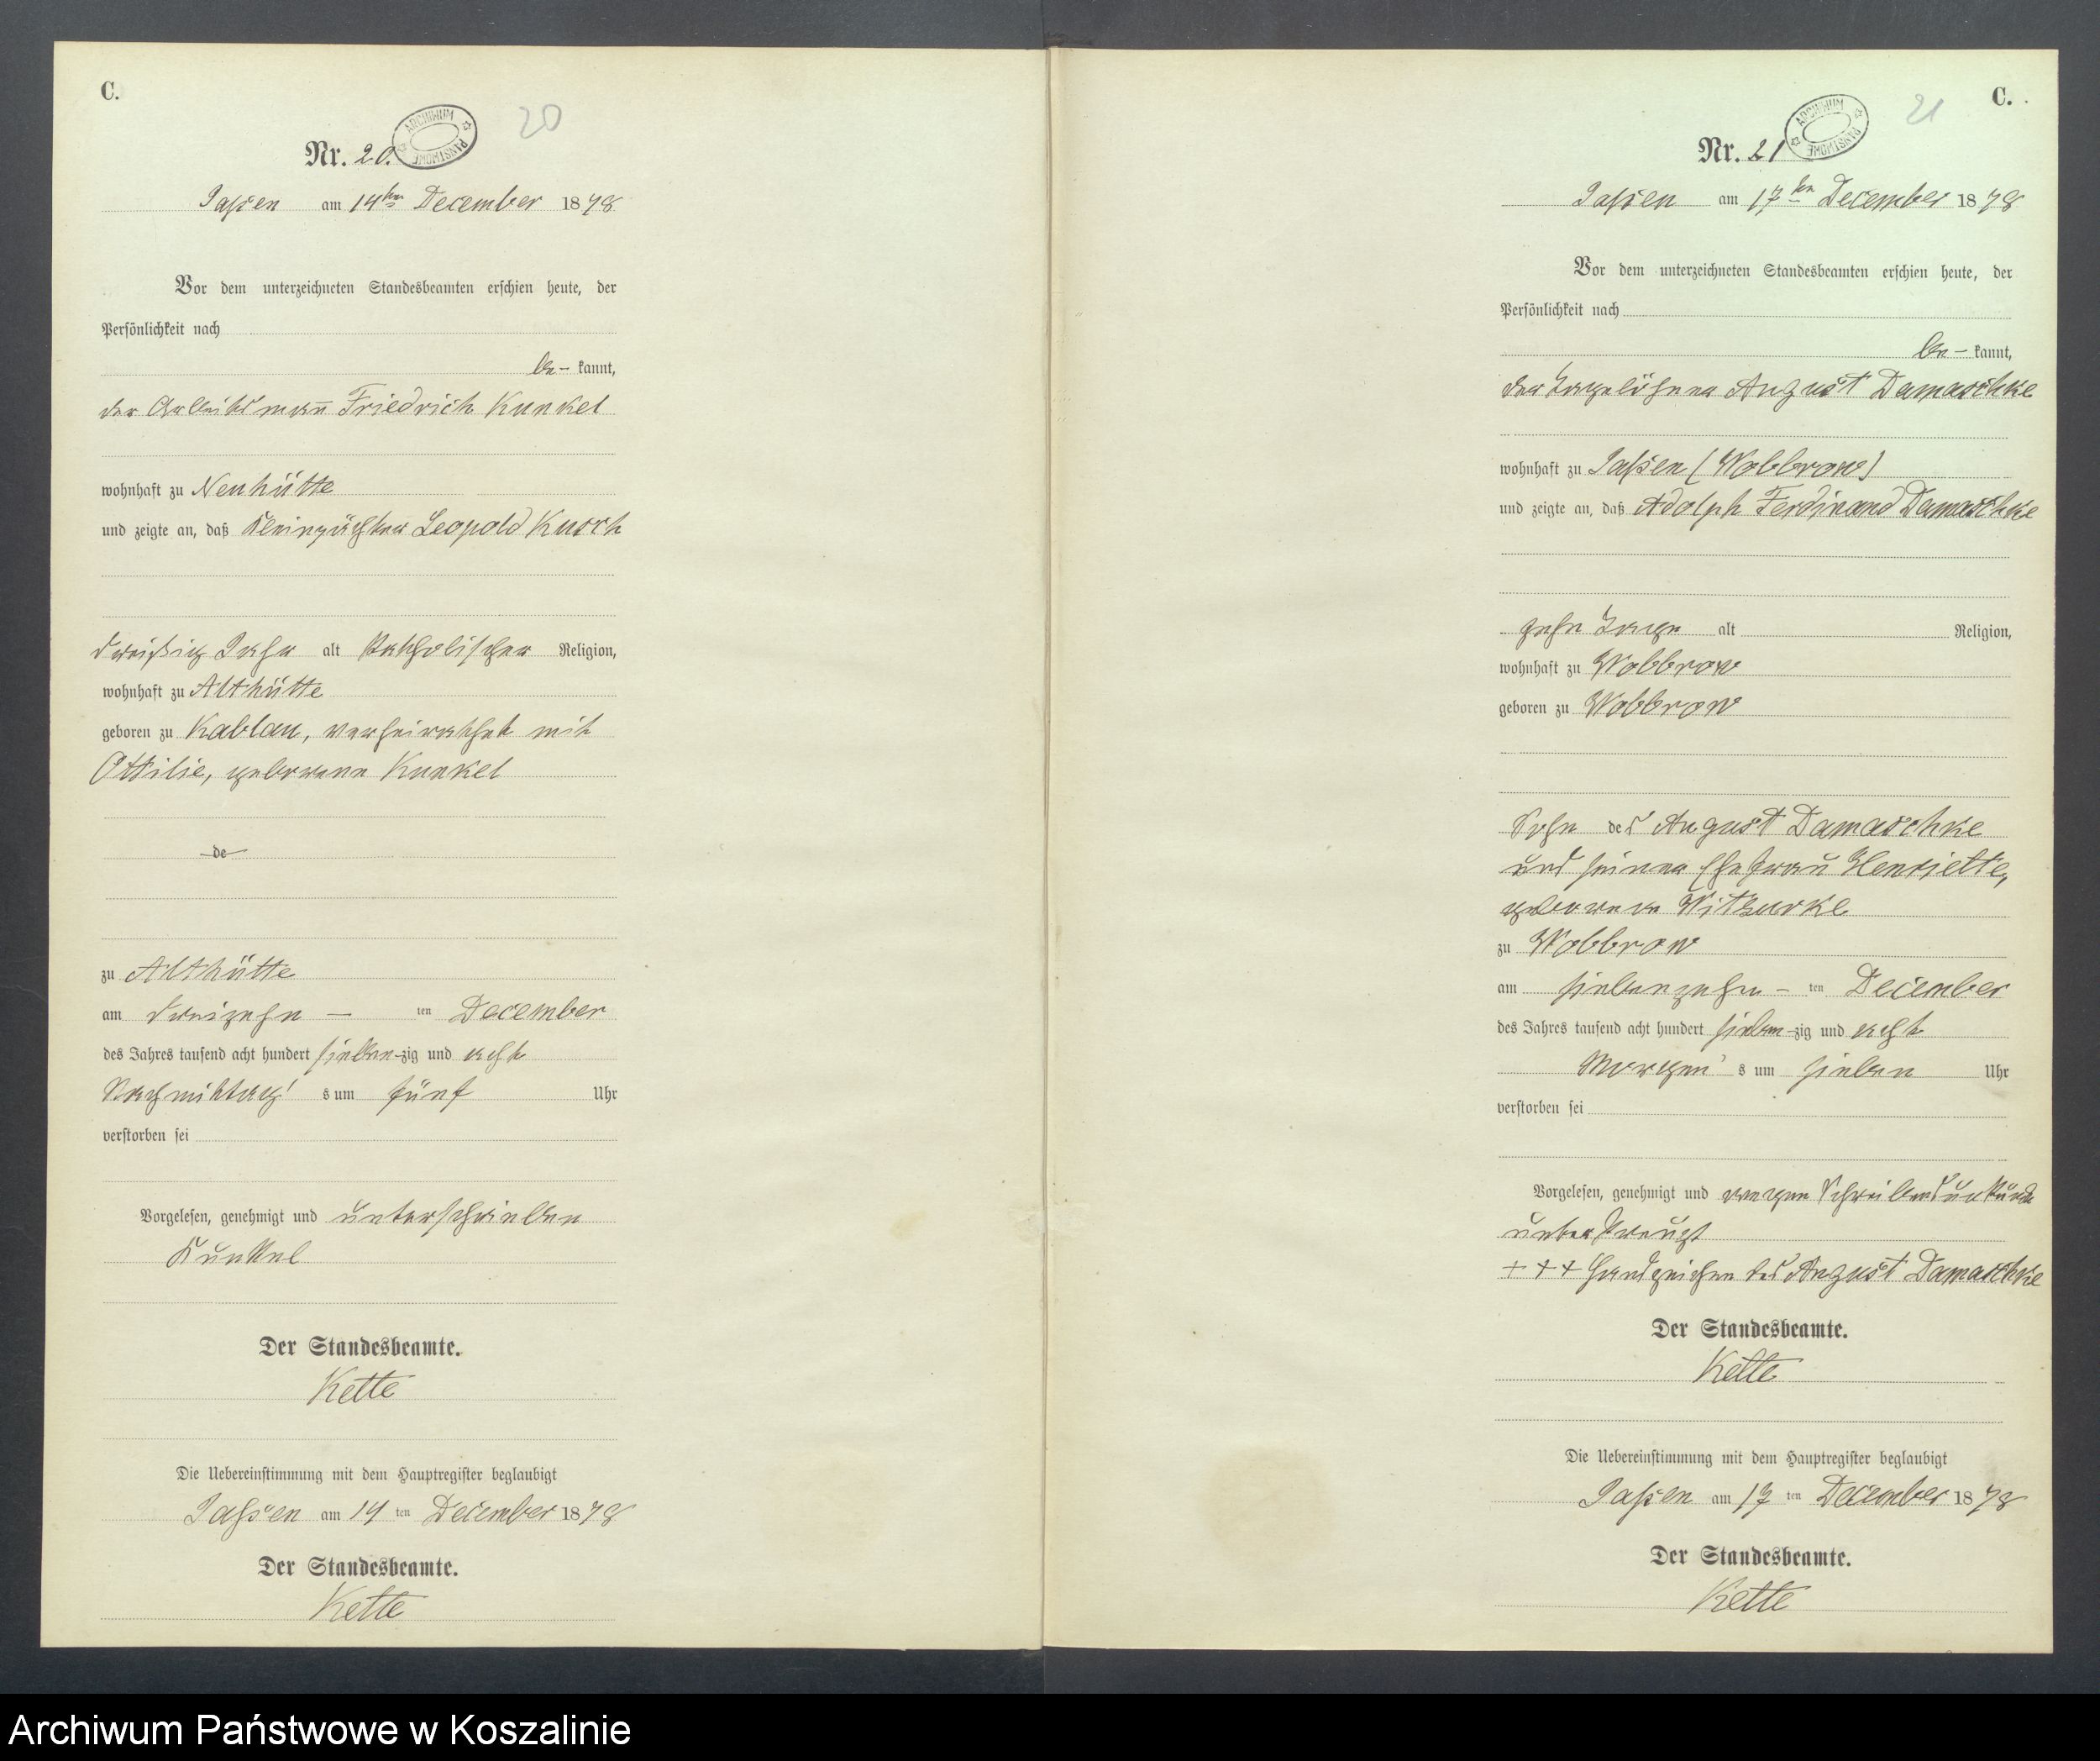 C.
Nr. 20.
20
ARCHIWUM PAŃSTWOWE
Jassen am 14ten December 1878
Vor dem unterzeichneten Standesbeamten erschien heute, der
Persönlichkeit nach
be- kannt,
der Arbeitsmann Friedrich Kunkel
wohnhaft zu Neuhütte
und zeigte an, daß Kleinpächter Leopold
dreißig Jahr alt katholischer Religion,
wohnhaft zu Althütte
geboren zu Kablau, verheirathet mit
Ottilie, geborene Kunkel
de
zu Althütte
am dreizehn - ten December
des Jahres tausend acht hundert sieben-zig und acht
Nachmittag s um fünf Uhr
verstorben sei
Vorgelesen, genehmigt und unterschrieben
Kunkel
Der Standesbeamte.
Kette
Die Uebereinstimmung mit dem Hauptregister beglaubigt
Jassen am 14 ten December 1878
Der Standesbeamte.
Kette
C.
Nr. 21
21
ARCHIWUM PAŃSTWOWE
Jassen am 17ten December 1878
Vor dem unterzeichneten Standesbeamten erschien heute, der
Persönlichkeit nach
be- kannt,
der Tagelöhner August Damaschke
wohnhaft zu Jassen (Wobbrow)
und zeigte an, daß Adolph Ferdinand Damaschke
zehn Tage alt Religion,
wohnhaft zu Wobbrow
geboren zu Wobbrow
Sohn des August Damaschke
und seiner Ehefrau Henriette,
geborene
zu Wobbrow
am siebenzehn - ten December
des Jahres tausend acht hundert sieben-zig und acht
Morgen s um sieben Uhr
verstorben sei
Vorgelesen, genehmigt und wegen Schreibensunkunde
unterkreuzt
+++ Handzeichen des August Damaschke
Der Standesbeamte.
Kette
Die Uebereinstimmung mit dem Hauptregister beglaubigt
Jassen am 17 ten December 1878
Der Standesbeamte.
Kette
Archiwum Państwowe w Koszalinie